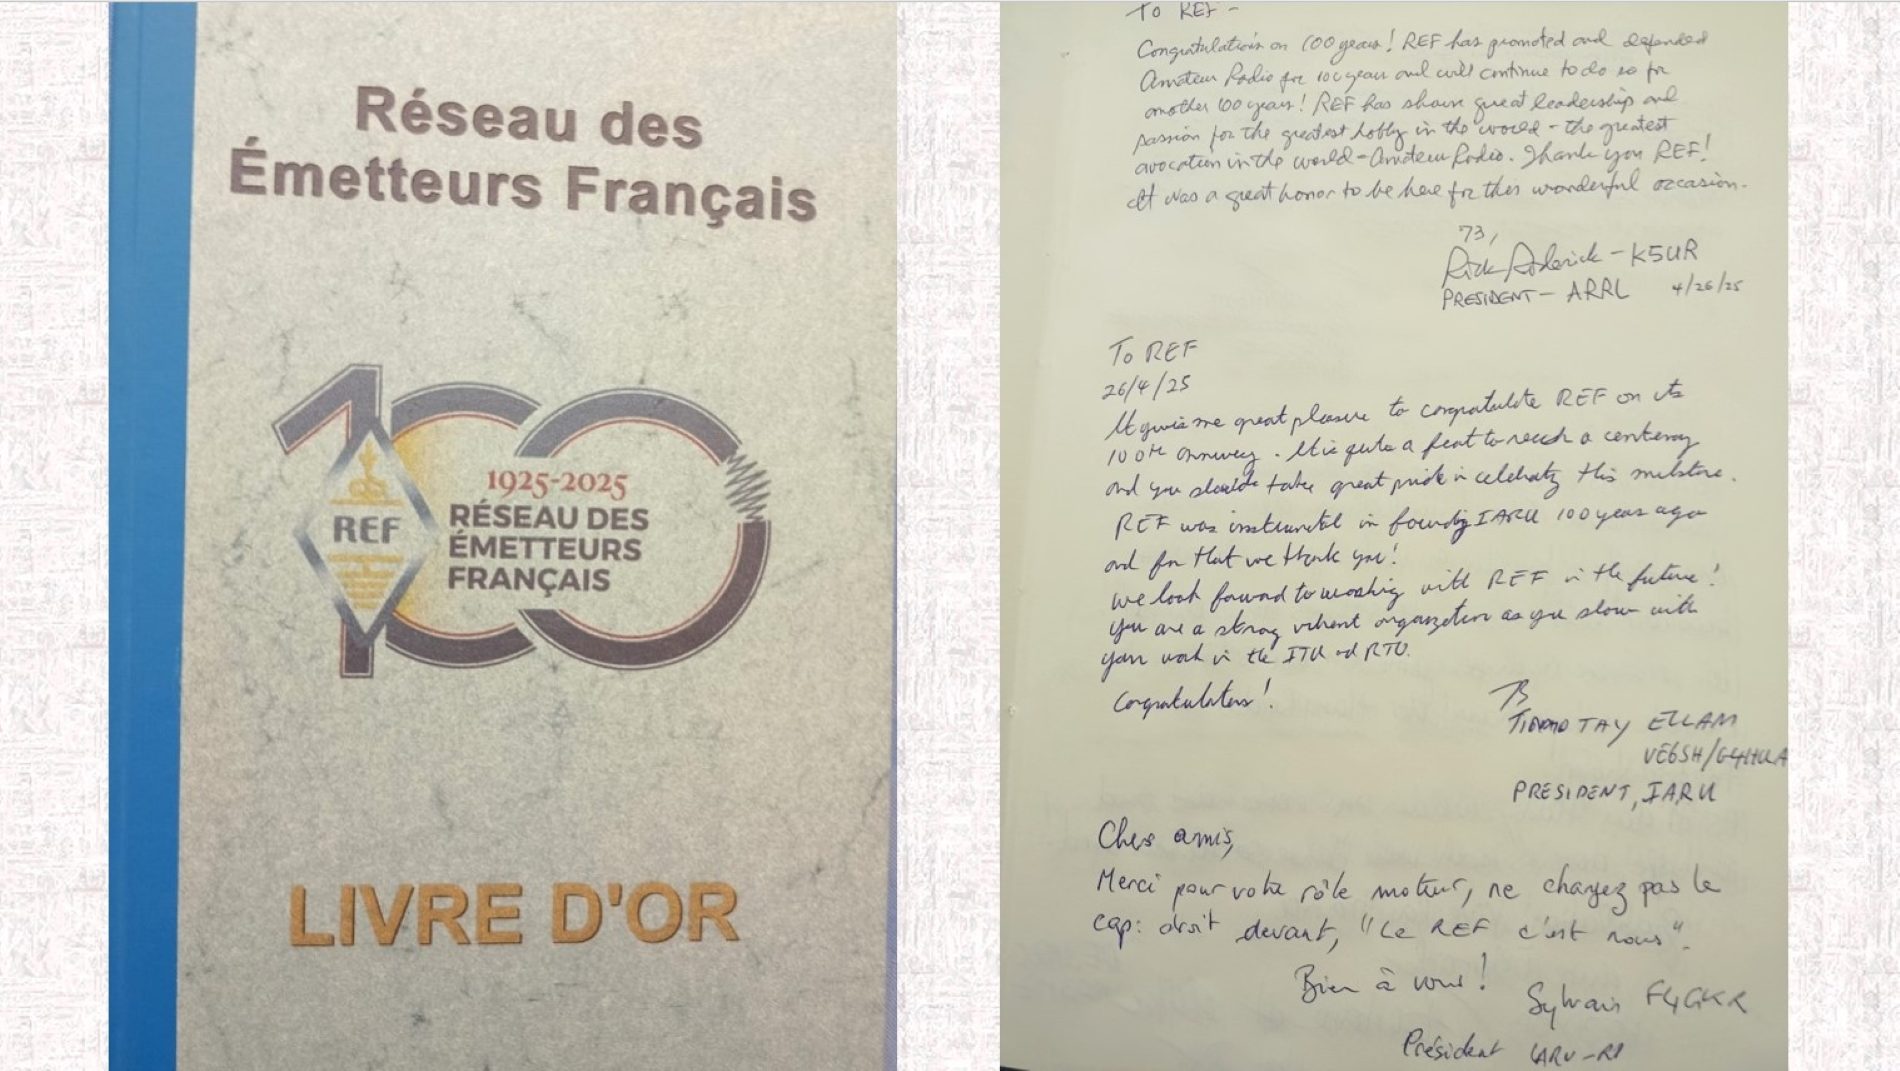 Réseau des
Émetteurs Français
1925-2025
REF
RÉSEAU DES
ÉMETTEURS
FRANÇAIS
LIVRE D'OR
To REF -
Congratulations on 100 years! REF has promoted and defended
Amateur Radio for 100 years and will continue to do so for
another 100 years! REF has shown great leadership and
passion for the greatest hobby in the world - the greatest
avocation in the world - Amateur Radio. Thank you REF!
It was a great honor to be here for this wonderful occasion.
73,
Rick Roderick - K5UR
PRESIDENT - ARRL 4/26/25
To REF
26/4/25
It gives me great pleasure to congratulate REF on its
100th anniversary. It is quite a feat to reach a centenary
and you should take great pride in celebrating this milestone.
REF was instrumental in founding IARU 100 years ago
and for that we thank you!
We look forward to working with REF in the future!
You are a strong vibrant organization as you show with
your work in the ITU and
Congratulations!
ELLAM
VE6SH/G4HUA
PRESIDENT, IARU
Chers amis,
Merci pour votre rôle moteur, ne changez pas le
cap: droit devant, "Le REF c'est nous".
Bien à vous!
Sylvain F4GKR
Président IARU-R1